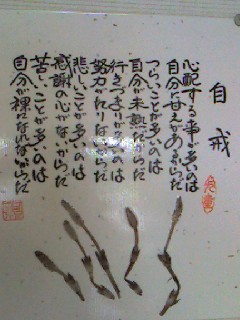 自戒
心配する事が多いのは
自分に甘えがあるからだ
つらいことが多いのは
自分が未熟だからだ
行きづまりが多いのは
努力がたりないからだ
悲しいことが多いのは
感謝の心がないからだ
苦しいことが多いのは
自分が裸になれないからだ